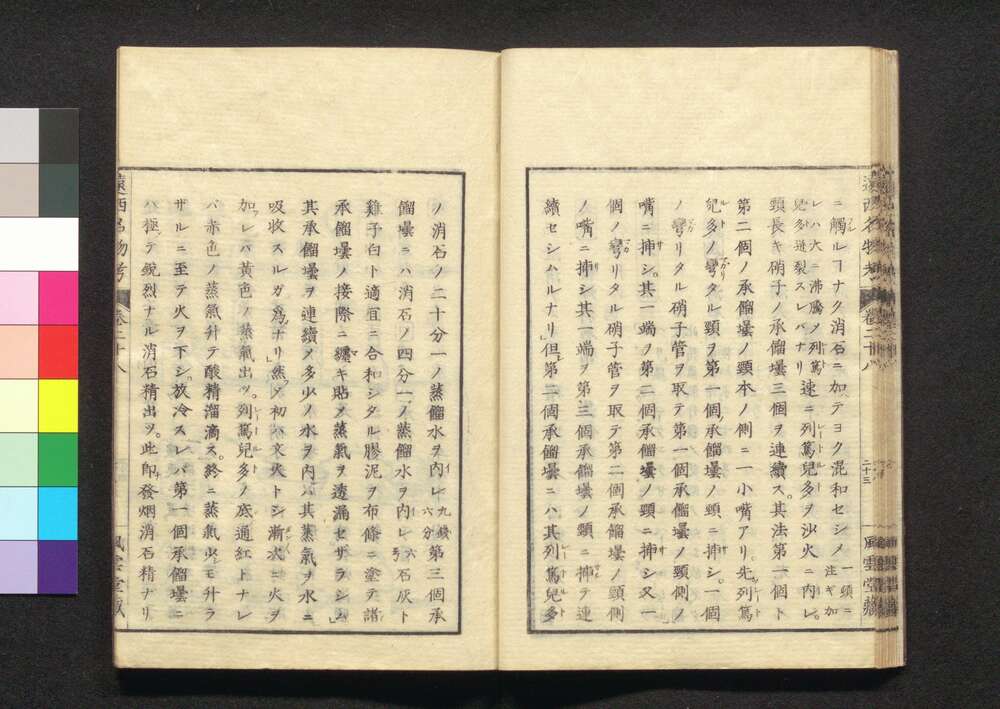 ニ觸ルヿナク消石ニ加テヨク混和セシメ 一頭ニ注ギ加
レハ大ニ沸騰メ列篤兒多迸裂スレバナリ 速ニ列篤兒多ヲ沙火ニ内レ。
頸長キ硝子ノ承餾壜三個ヲ連續ス。其法第一個ト
第二個ノ承餾壜ノ頸本ノ側ニ一小嘴アリ。先列篤
兒多ノ彎タル頸ヲ第一個承餾壜ノ頸ニ挿シ。一個
ノ彎リタル硝子管ヲ取テ第一個承餾壜ノ頸側ノ
嘴ニ挿シ。其一端ヲ第二個承餾壜ノ頸ニ挿シ又一
個ノ彎リタル硝子管ヲ取テ第二個承餾壜ノ頸側
ノ嘴ニ挿シ其一端ヲ第三個承餾壜ノ頸ニ挿テ連
續セシムルナリ」但第一個承餾壜ニハ其列篤兒多
遠西名物考 卷二十八 二十三 風雲堂藏
ノ消石ノ二十分一ノ蒸餾水ヲ内レ 九錢六分 第三個承
餾壜ニハ消石ノ四分一ノ蒸餾水ヲ内レ 六 石灰ト
雞子白ト適宜ニ合和シタル膠泥ヲ布條ニ塗テ諸
承餾壜ノ接際ニ纏キ貼メ蒸氣ヲ透漏セザラシム」
其承餾壜ヲ連續メ多少ノ水ヲ内ハ其蒸氣ヲ水ニ
吸收スルガ爲ナリ」然メ初ハ文火トシ漸次ニ火ヲ
加フレバ黄色ノ蒸氣出ツ。列篤兒多ノ底通紅トナレ
バ赤色ノ蒸氣升テ酸精溜滴ス。終ニ蒸氣少モ升ラ
ザルニ至テ火ヲ下シ。放冷スレバ第一個承餾壜ニ
ハ極テ鋭烈ナル消石精出ツ。此即發烟消石精ナリ
遠西名物考 卷二十八 風雲堂藏